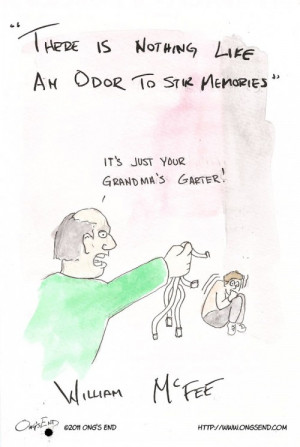 "THERE IS NOTHING LIKE
AN ODOR TO STIR MEMORIES"
IT'S JUST YOUR
GRANDMA'S GARTER!
WILLIAM McFEE
Ong'sEnd ©2011 ONG'S END HTTP://WWW.ONGSEND.COM